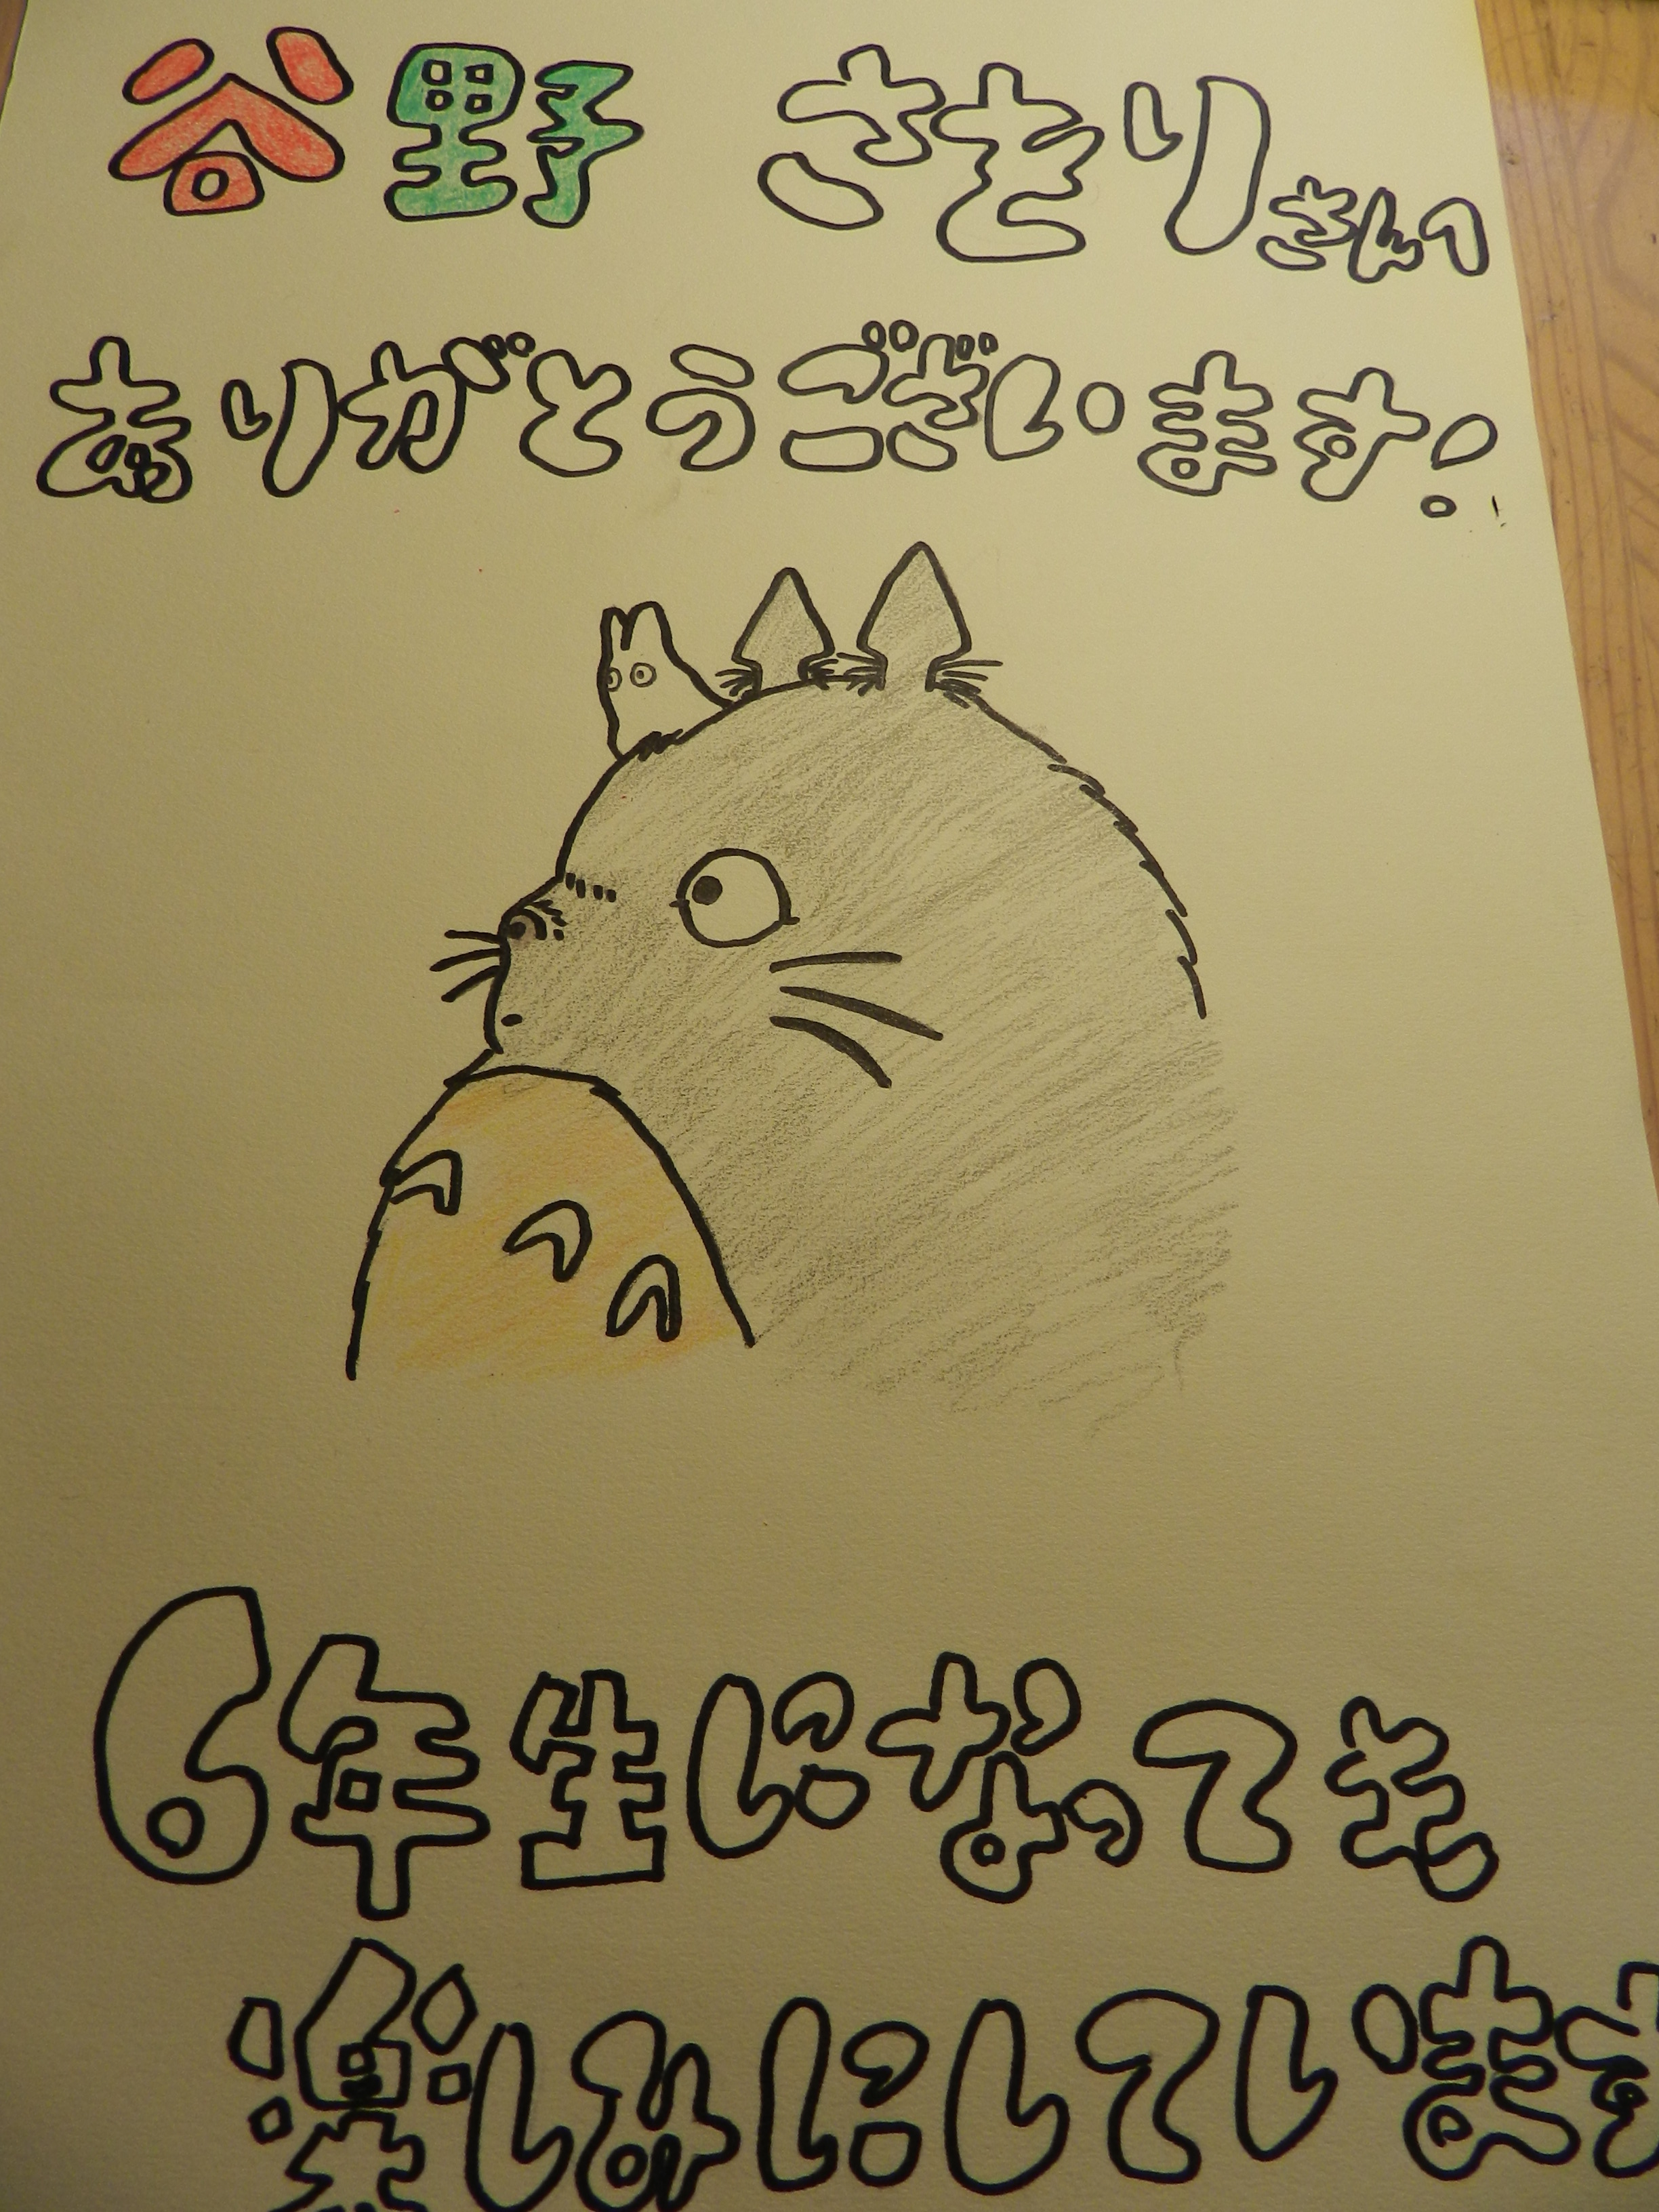 谷野 さをりさんへ
ありがとうございます!
6年生になっても
楽しみにしています